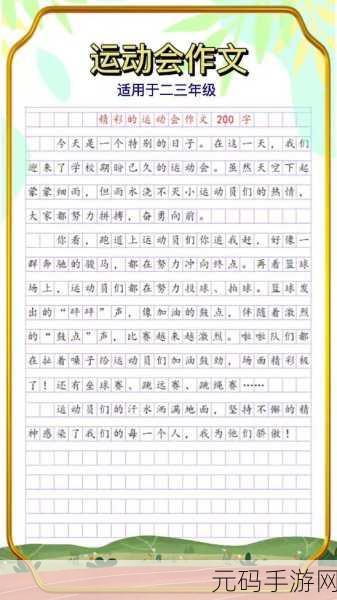 运动会作文
适用于二三年级
精彩的运动会作文200字
今天是一个特别的日子。在这一天，我们
迎来了学校期盼已久的运动会。虽然天空下起
蒙蒙细雨，但雨水浇不灭小运动员们的热情，
大家都努力拼搏，奋勇向前。
你看，跑道上运动员们你追我赶，好像一
群奔驰的骏马，都在努力冲向终点。再看篮球
场上，运动员们都在努力投球、拍球。篮球发
出的“砰砰”声，像加油的鼓点，伴随着激烈
的“鼓点”声，比赛越来越激烈。啦啦队们都
在扯着嗓子给运动员们加油鼓劲，场面精彩极
了！还有垒球赛、跳远赛、跳绳赛……
运动员们的汗水洒满地面，坚持不懈的精
神感染了我们的每一个人，我为他们骄傲！
元码手游网